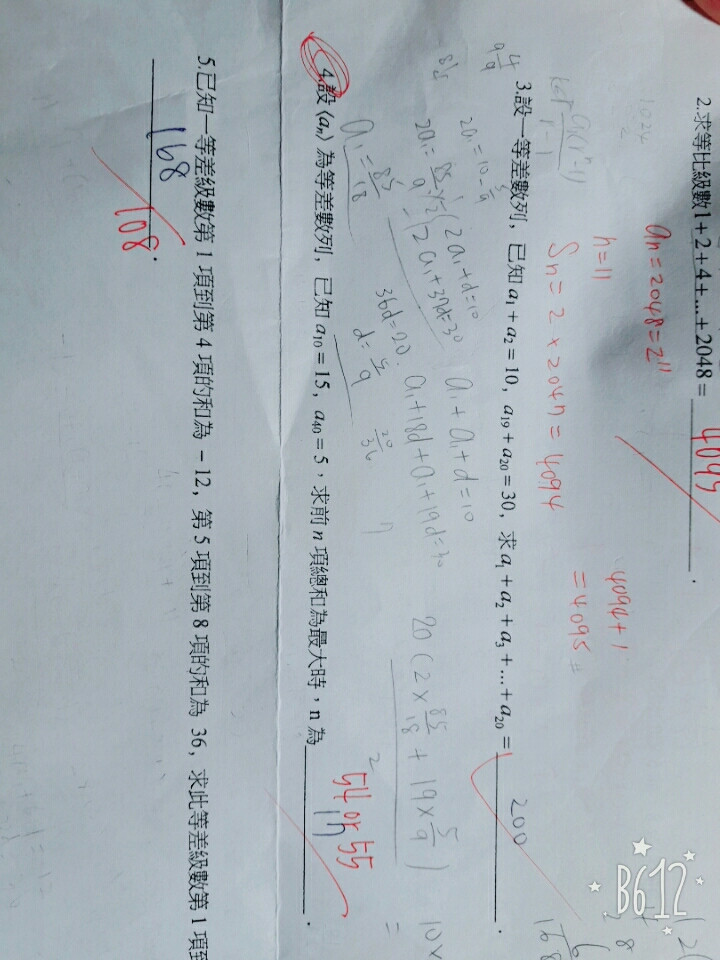 2.求等比級數1+2+4+...+2048= 4095 .
1024
aₙ=2048=2¹¹
n=11
Sₙ= 2 × 2047 = 4094
4094+1
=4095
3.設一等差數列，已知 a₁+a₂=10，a₁₉+a₂₀=30，求 a₁+a₂+a₃+...+a₂₀= 200 .
2a₁+d=10
2a₁+37d=30
36d=20
d=5/9
20/36
a₁+a₁+d=10
a₁+18d+a₁+19d=30
2a₁=10-5/9
2a₁=85/9
a₁=85/18
20(2×85/18+19×5/9)
2
=
4.設⟨aₙ⟩為等差數列，已知 a₁₀=15，a₄₀=5，求前 n 項總和為最大時，n 為 17 54 or 55 .
5.已知一等差級數第 1 項到第 4 項的和為 −12，第 5 項到第 8 項的和為 36，求此等差級數第 1 項到
168 108 .
B612